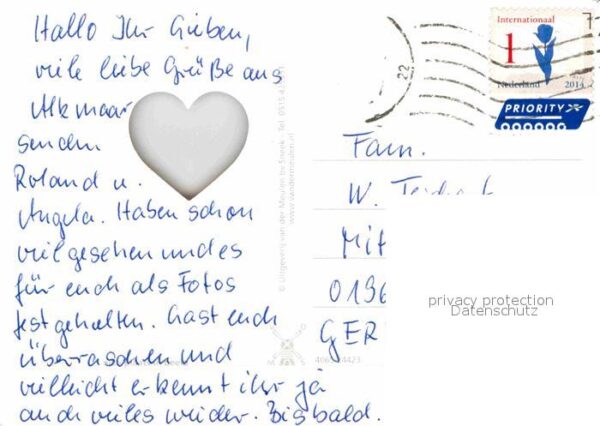 Hallo Ihr Lieben,
viele liebe Grüße aus
Alkmaar
senden
Roland u.
Angela. Haben schon
viel gesehen und es
für euch als Fotos
festgehalten. Lasst euch
überraschen und
vielleicht erkennt ihr ja
auch vieles wieder. Bis bald.
© Uitgeverij van der Meulen bv Sneek - Tel. 0515
www.vandermeulen.nl
22
Internationaal
1
Nederland 2014
PRIORITY
Fam.
W.
Mit
0196
GER
privacy protection
Datenschutz